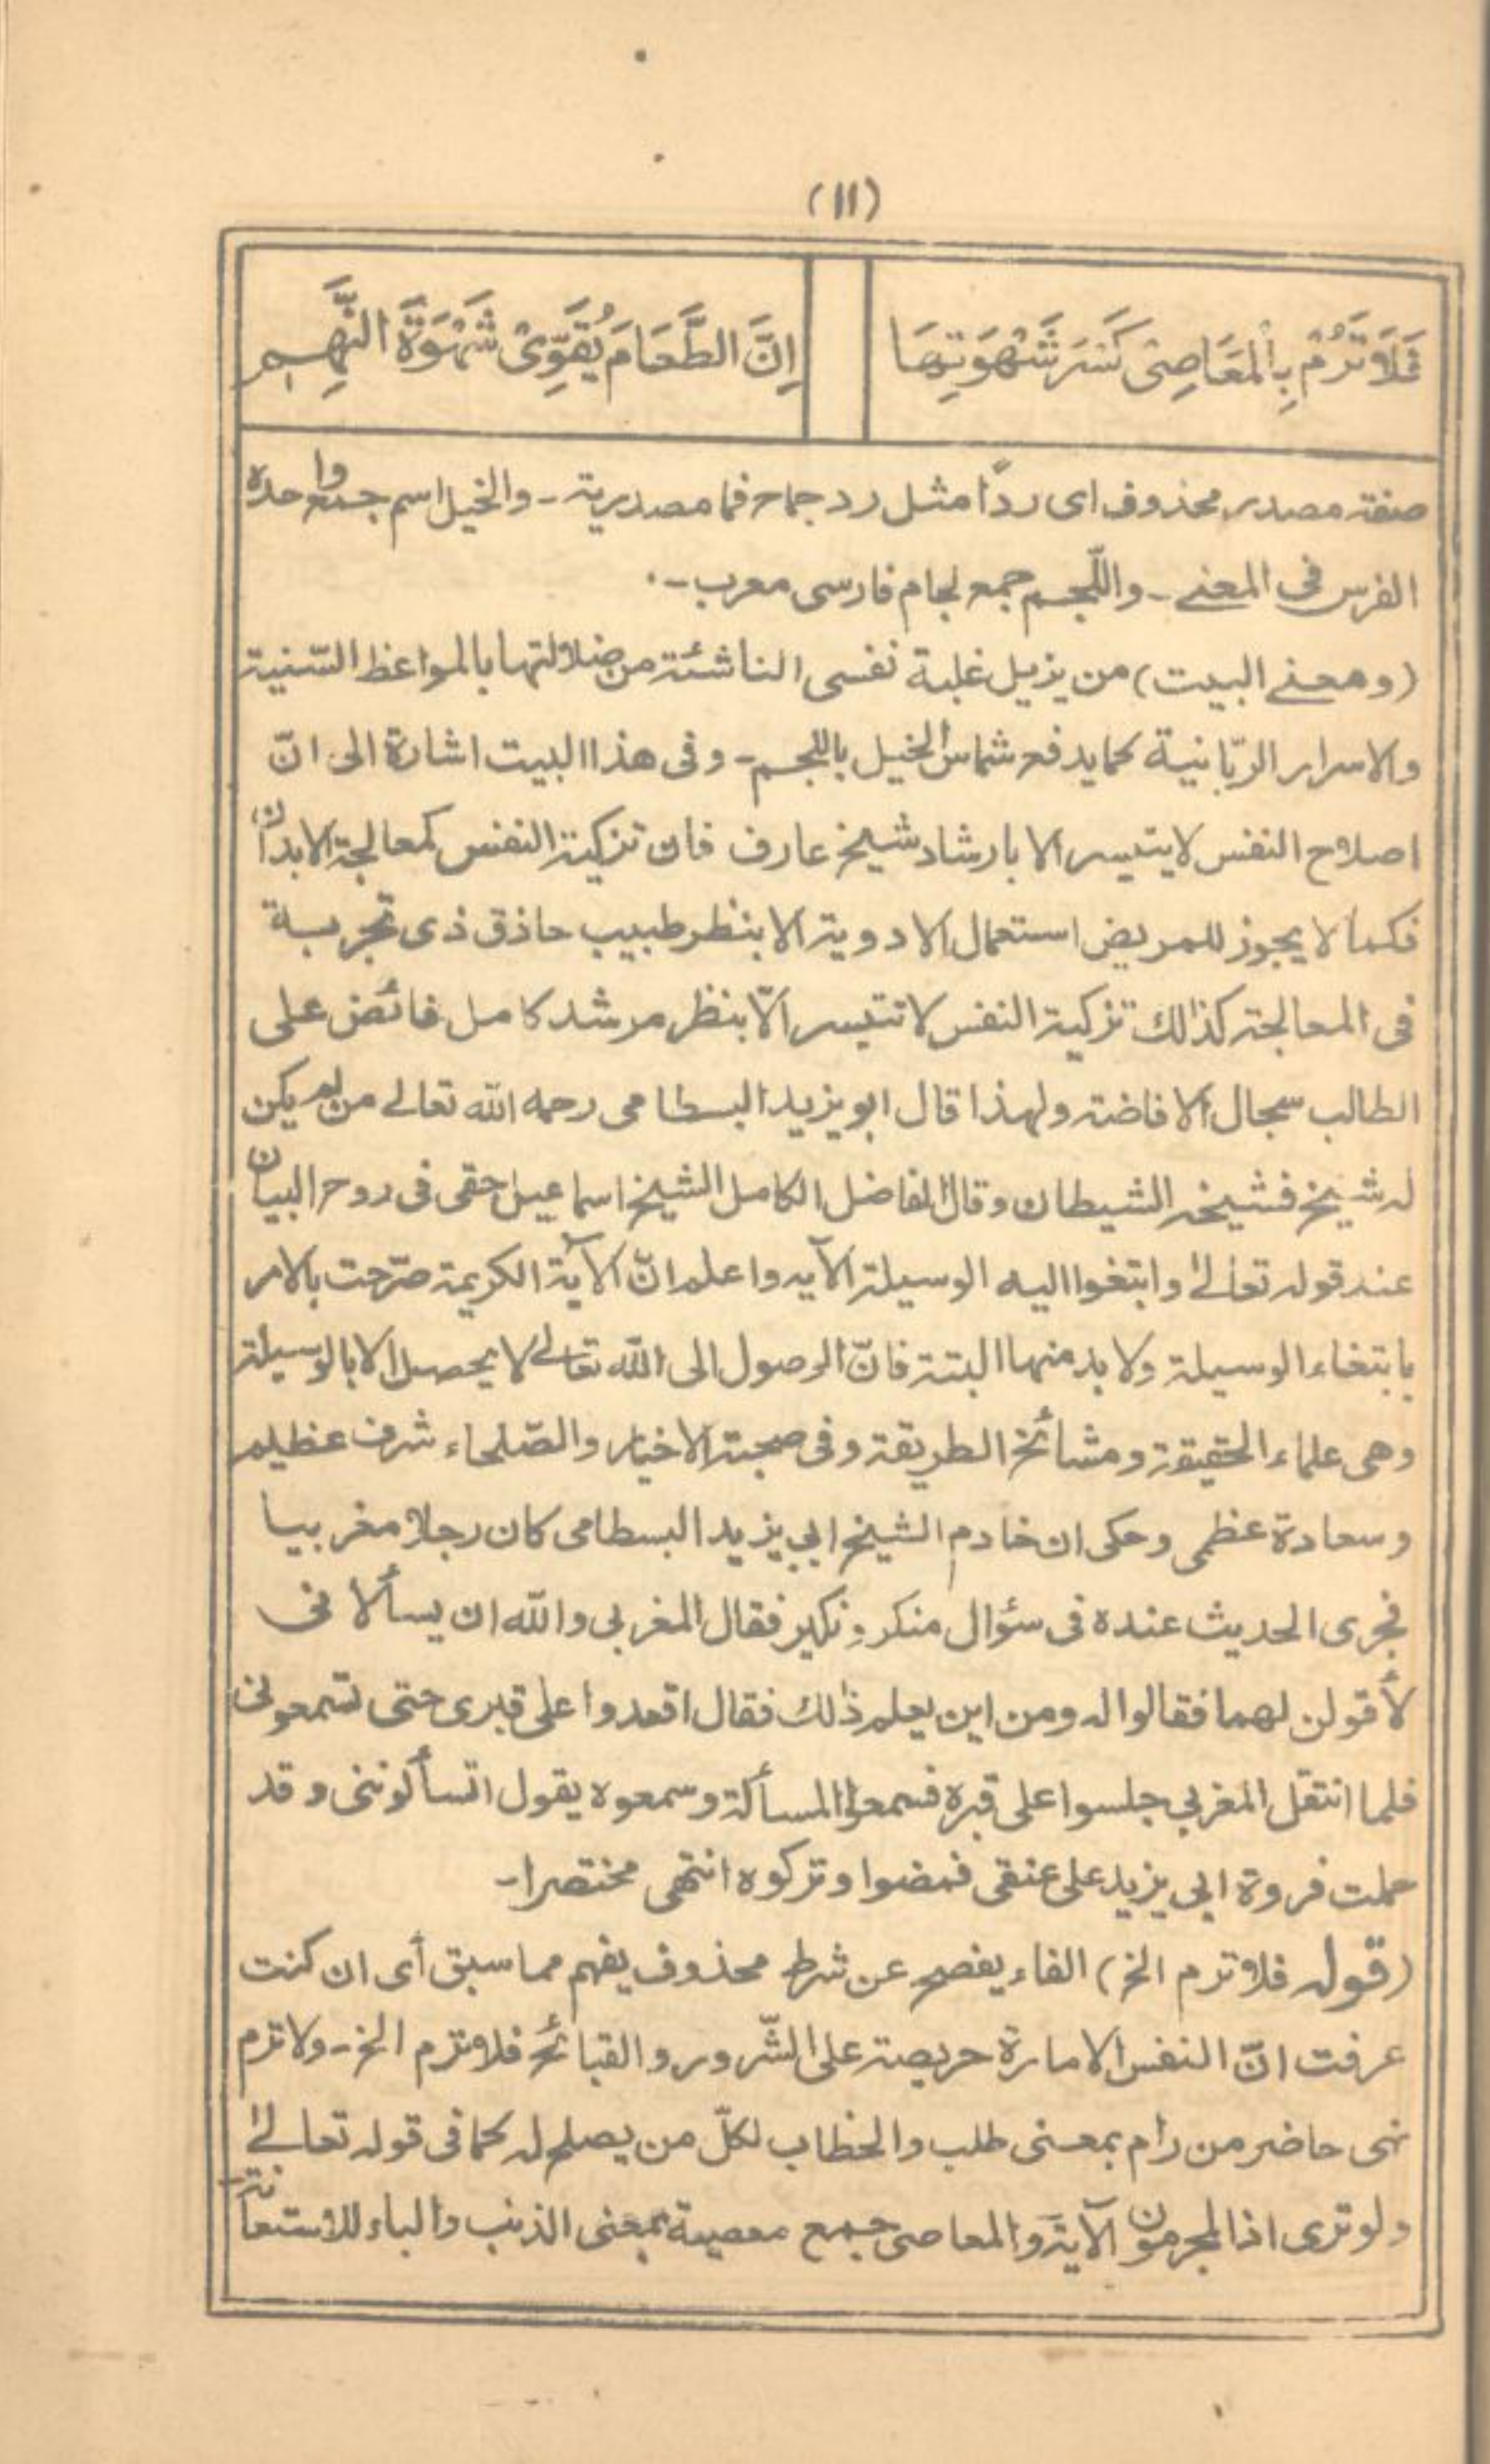 (١١)
فَلَا تَرُمْ بِالْمَعَاصِىْ كَسْرَ شَهْوَتِهَا
اِنَّ الطَّعَامَ يُقَوِّىْ شَهْوَةَ النَّهِمِ
صفة مصدر محذوف اى ردًا مثل رد جماح فما مصدرية ۔ والخيل اسم جمع واحده
الفرس فى المعنى ۔ واللّجم جمع لجام فارسى معرب ۔
(ومعنى البيت) من يزيل غلبة نفسى الناشئة من ضلالتها بالمواعظ السّنية
والاسرار الربّانية كما يدفع شماس الخيل باللجم ۔ وفى هذا البيت اشارة الى انّ
اصلاح النفس لا يتيسر الا بارشاد شيخ عارف فان تزكية النفس كمعالجة الابدان
فكما لا يجوز للمريض استعمال الادوية الا بنظر طبيب حاذق ذى تجربة
فى المعالجة كذالك تزكية النفس لا تتيسر الّا بنظر مرشد كامل فائض على
الطالب سجال الافاضة ولهذا قال ابو يزيد البسطامى رحمه الله تعالى من لم يكن
له شيخ فشيخه الشيطان وقال الفاضل الكامل الشيخ اسماعيل حقى فى روح البيان
عند قوله تعالىٰ وابتغوا اليه الوسيلة الآيه واعلم انّ الآية الكريمة صرّحت بالامر
بابتغاء الوسيلة ولا بد منها البتة فانّ الوصول الى الله تعالى لا يحصل الا بالوسيلة
وهى علماء الحقيقة ومشائخ الطريقة وفى صحبة الاخيار والصّلحاء شرف عظيم
وسعادة عظمى وحكى ان خادم الشيخ ابي يزيد البسطامى كان رجلا مغربيا
فجرى الحديث عنده فى سؤال منكر ونكير فقال المغربى والله ان يسألانى
لأقولن لهما فقالوا له ومن اين يعلم ذٰلك فقال اقعدوا على قبرى حتى تسمعونى
فلما انتقل المغربي جلسوا على قبره فسمعوا المسألة وسمعوه يقول اتسألوننى وقد
حملت فروة ابي يزيد على عنقى فمضوا وتركوه انتهى مختصرا ۔
(قوله فلا ترم الخ) الفاء يفصح عن شرط محذوف يفهم مما سبق أى ان كنت
عرفت انّ النفس الامارة حريصة على الشّرور والقبائح فلا ترم الخ ۔ ولا ترم
نهى حاضر من رام بمعنى طلب والخطاب لكلّ من يصلح له كما فى قوله تعالىٰ
ولو ترى اذ المجرمون الآية والمعاصى جمع معصية بمعنى الذنب والباء للاستعانة